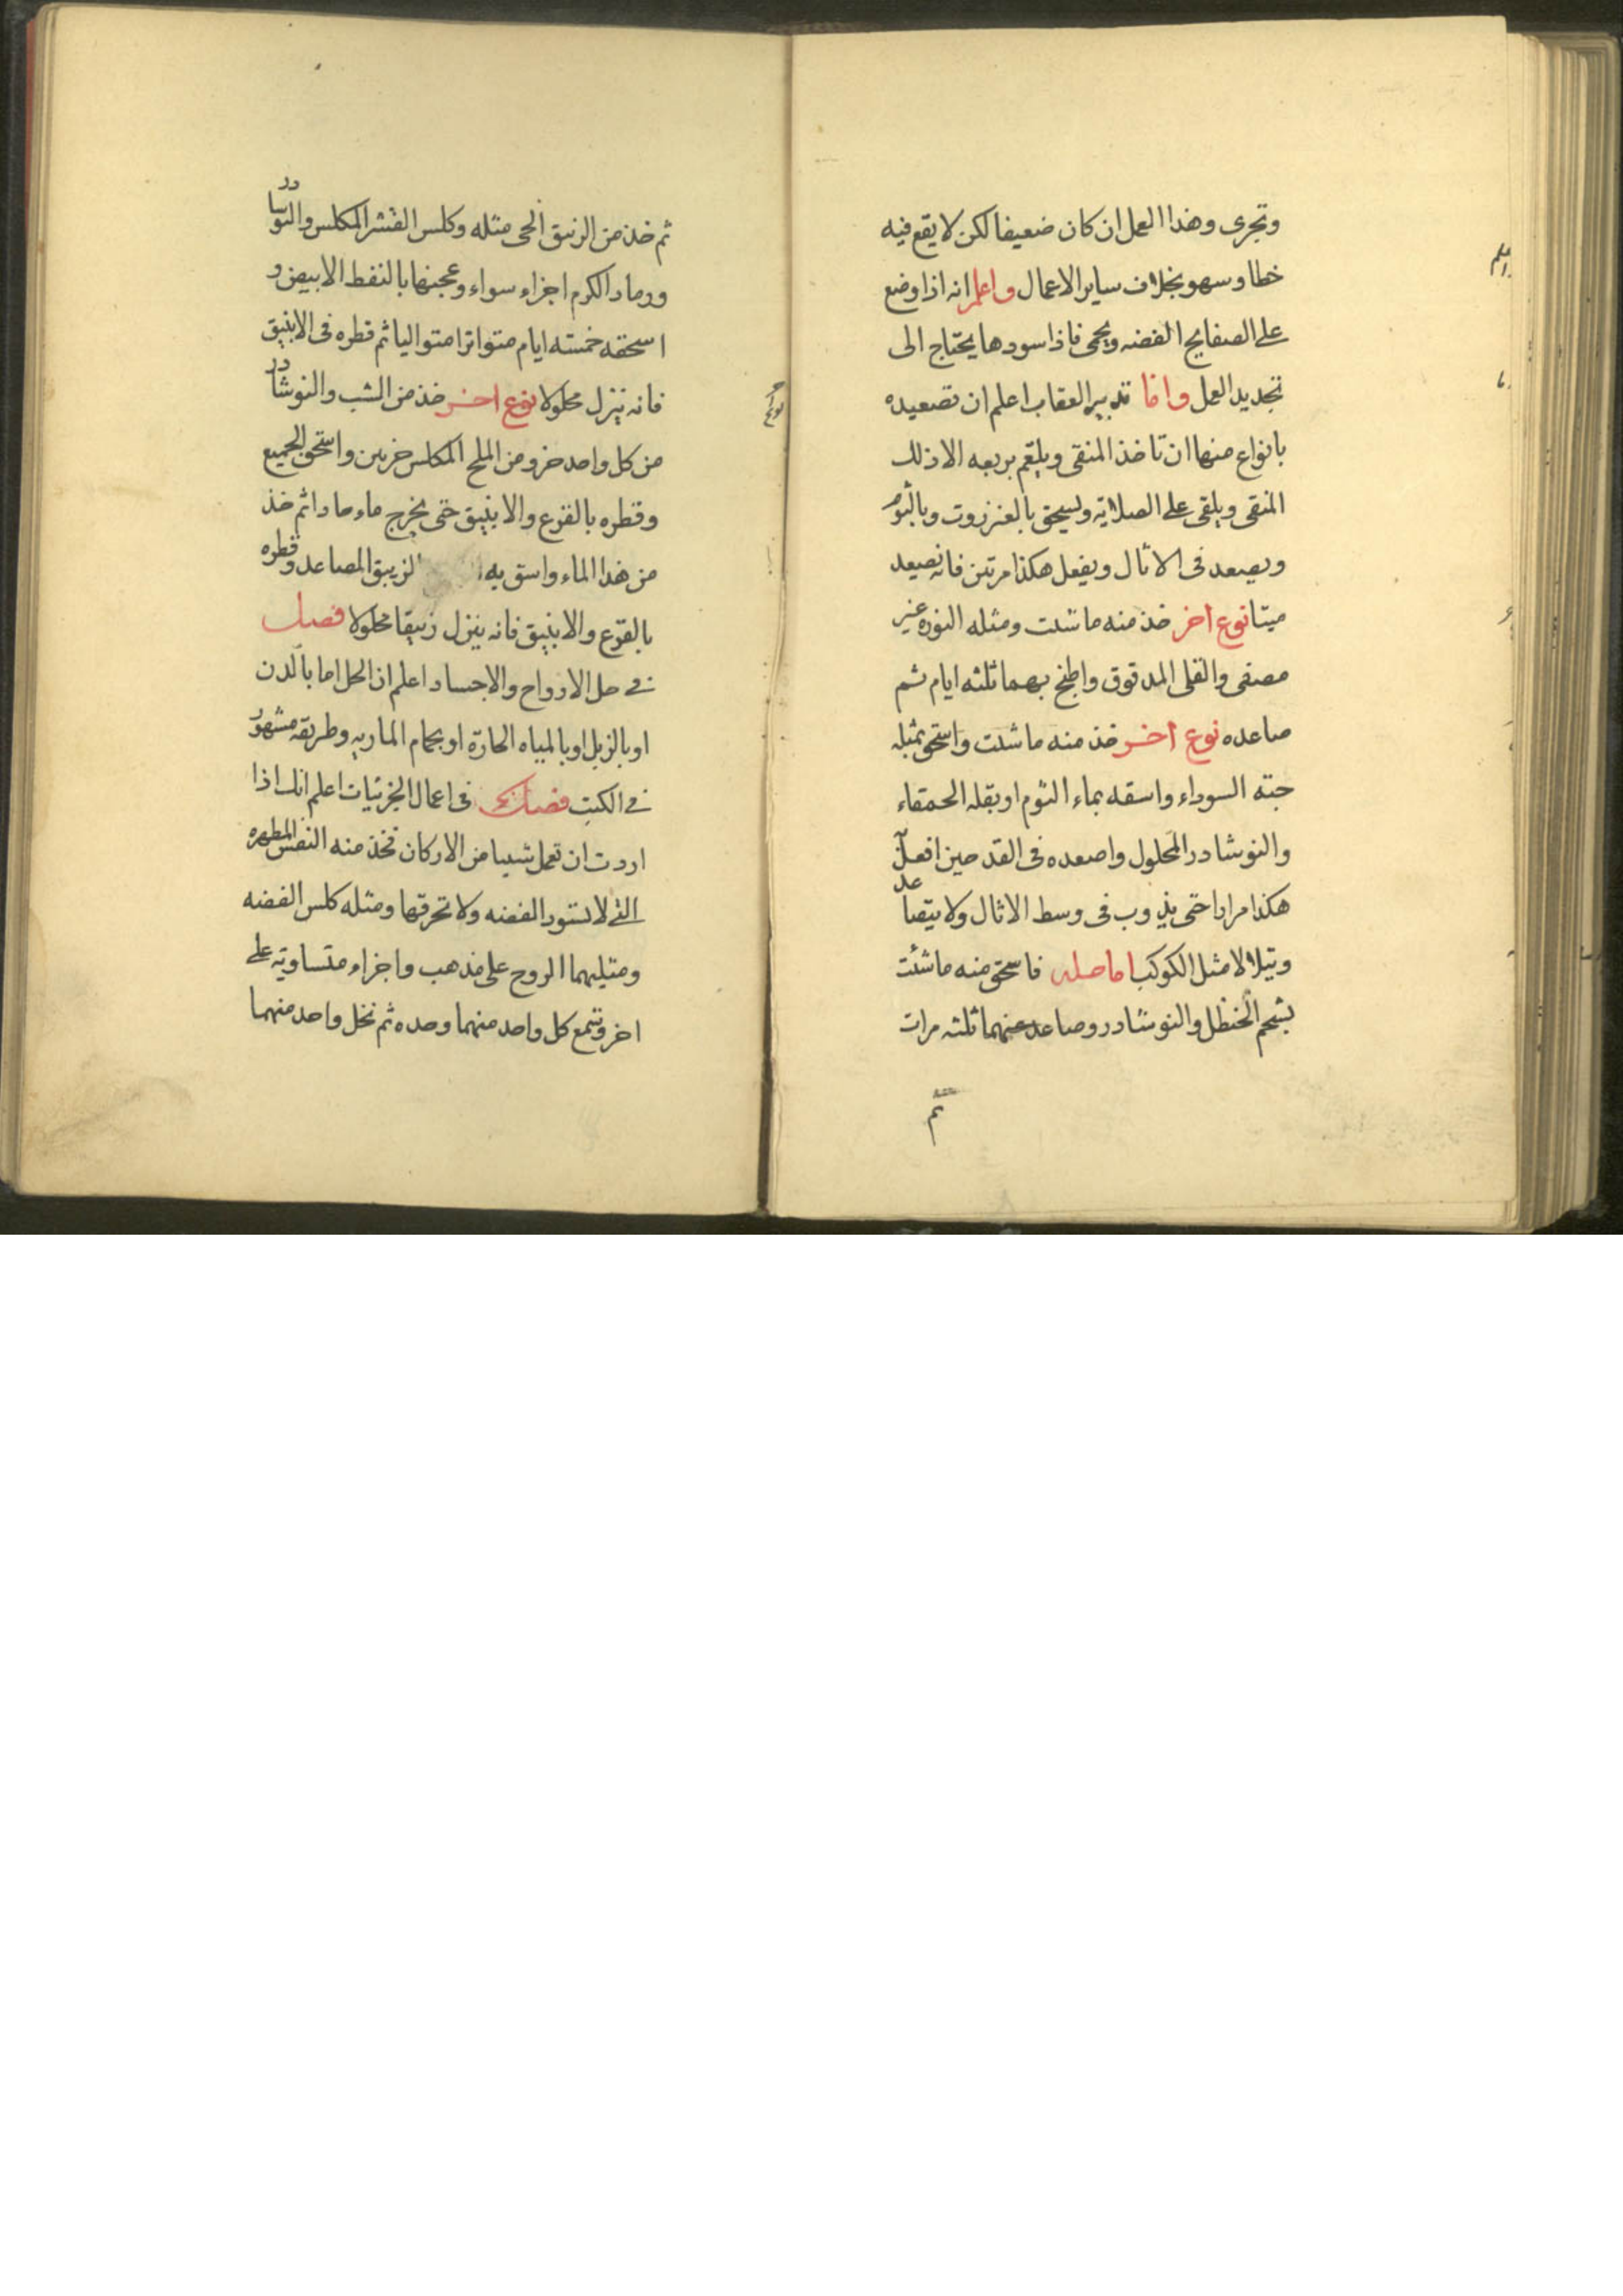 وتجرى وهذا العمل ان كان ضعيفا لكن لا يقع فيه
خطا وسهو بخلاف ساير الاعمال واعلم انه اذا وضع
على الصفايح الفضه ويحمى فاذا سودها يحتاج الى
تجديد العمل واما تدبير العقاب اعلم ان تصعيده
بانواع منها ان تاخذ المنقى ويلغم بربعه الا ذلك
المنقى ويلقى على الصلاية ويسحق بالعنزروت وبالثوم
ويصعد فى الاثال ويفعل هكذا مرتين فانه يصعد
ميتا نوع اخر خذ منه ما شئت ومثله النوره غير
مصفى والقلى المدقوق واطبخ بهما ثلثه ايام ثم
صاعده نوع اخر خذ منه ما شئت واسحق بمثله
حبته السوداء واسقه بماء الثوم او بقله الحمقاء
والنوشادر المحلول واصعده فى القدحين افعل
هكذا مرارا حتى يذوب فى وسط الاثال ولا يتصاعد
ويتلالا مثل الكوكب اما حله فاسحق منه ما شئت
بشحم الحنظل والنوشادر وصاعد عنهما ثلثه مرات
ثم
ثم خذ من الزيبق الحى مثله وكلس القشر المكلس والنوشادر
ورماد الكرم اجزاء سواء وعجنها بالنفط الابيض و
اسحقه خمسته ايام متواترا متواليا ثم قطره فى الانبيق
فانه ينزل محلولا نوع اخر خذ من الشب والنوشادر
من كل واحد جزو ومن الملح المكلس جزين واسحق الجميع
وقطره بالقرع والانبيق حتى يخرج ماء حادا ثم خذ
من هذا الماء واسق به الزيبق المصاعد وقطره
بالقرع والانبيق فانه ينزل زيبقا محلولا فصل
فى حل الارواح والاجساد اعلم ان الحل اما بالدن
او بالزبل او بالمياه الحارة او بحمام الماريه وطريقه مشهور
فى الكتب فصل فى اعمال الجزئيات اعلم انك اذا
اردت ان تعمل شييا من الاركان فخذ منه النفس المطهره
التى لا تسود الفضه ولا تحرقها ومثله كلس الفضه
ومثليهما الروح على مذهب واجزاء متساوية على
اخر وتشمع كل واحد منهما وحده ثم تحل واحد منهما